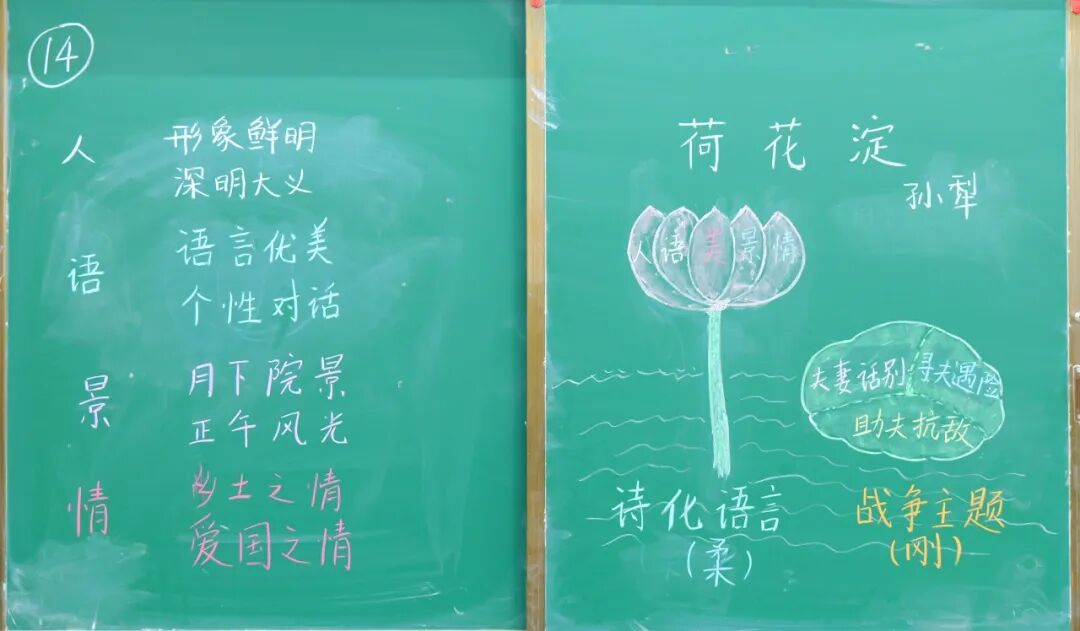 14
人
形象鲜明
深明大义
语
语言优美
个性对话
景
月下院景
正午风光
情
乡土之情
爱国之情
荷花淀
孙犁
人语美景情
夫妻话别
寻夫遇险
助夫抗敌
诗化语言
(柔)
战争主题
(刚)